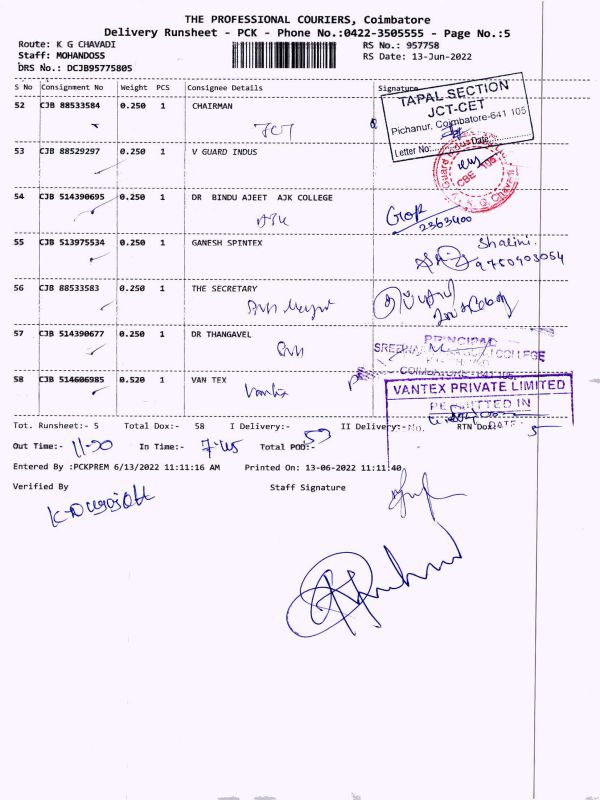 THE PROFESSIONAL COURIERS, Coimbatore
Delivery Runsheet - PCK - Phone No.:0422-3505555 - Page No.:5
Route: K G CHAVADI RS No.: 957758
Staff: MOHANDOSS RS Date: 13-Jun-2022
DRS No.: DCJB95775805
S No Consignment No Weight PCS Consignee Details Signature
52 CJB 88533584 0.250 1 CHAIRMAN
JCT
TAPAL SECTION
JCT-CET
Pichanur, Coimbatore-641 105
Letter No:........ Date:........
53 CJB 88529297 0.250 1 V GUARD INDUS
CBE 105
K. G. Chavadi
54 CJB 514390695 0.250 1 DR BINDU AJEET AJK COLLEGE
AJK
2363400
55 CJB 513975534 0.250 1 GANESH SPINTEX
Shalini.
9750903054
56 CJB 88533583 0.250 1 THE SECRETARY
57 CJB 514390677 0.250 1 DR THANGAVEL
PRINCIPAL
COLLEGE
COIMBATORE - 641 105.
58 CJB 514606985 0.520 1 VAN TEX
Vantex
VANTEX PRIVATE LIMITED
PERMITTED IN
No. DATE
Tot. Runsheet:- 5 Total Dox:- 58 I Delivery:- II Delivery:- RTN Dox: 5
Out Time:- 11-20 In Time:- 7-45 Total POD:- 53
Entered By :PCKPREM 6/13/2022 11:11:16 AM Printed On: 13-06-2022 11:11:40
Verified By Staff Signature